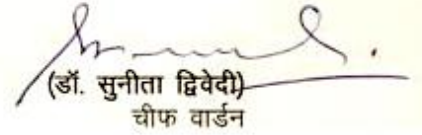 (डॉ. सुनीता द्विवेदी)
चीफ वार्डन